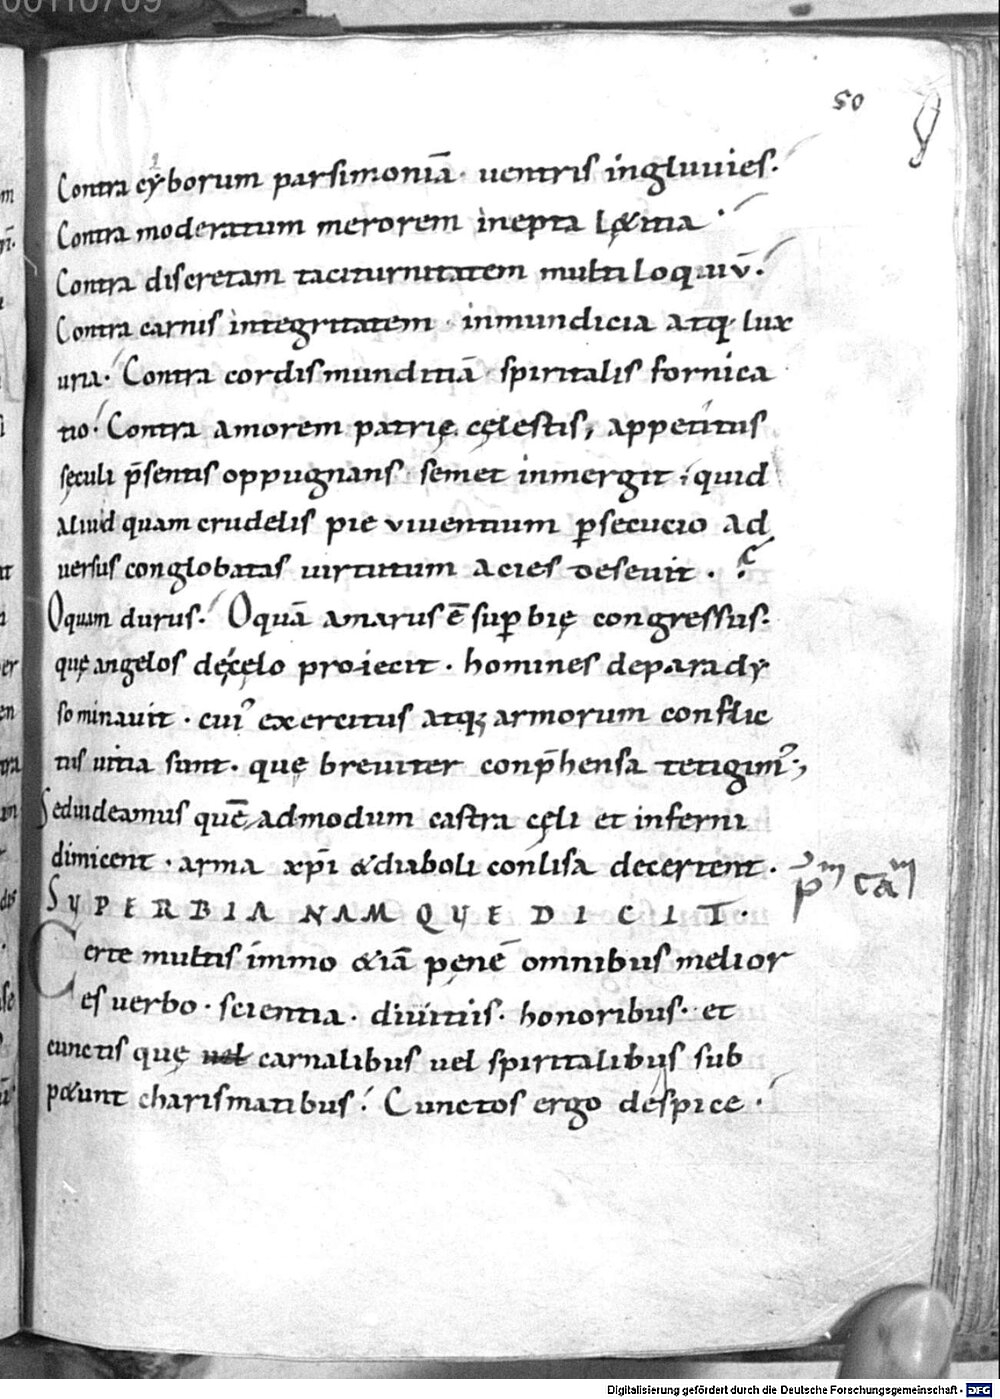 50
Contra cyborum parsimoniā· uentris ingluuies·
Contra moderatum merorem inepta l&itia·
Contra discretam taciturnitatem multiloquiū·
Contra carnis integritatem· inmundicia atq· lux
uria· Contra cordis munditiā· spiritalis fornica
tio· Contra amorem patrię cęlestis, appetitus
sęculi p̄sentis oppugnans· semet inmergit; quid
aliud quam crudelis pie viuentium ꝑsecucio ad
uersus conglobatas uirtutum acies deseuit·?
O quam durus· O quā amarus ē suꝑbię congressus·
quę angelos dęcęlo proiecit· homines de parady
so minauit· cui᾽ exercitus atq; armorum conflic
tus uitia sunt· quę breuiter conp̄hensa tetigim᾽;
Sed uideamus quē admodum castra cęli et inferni
dimicent· arma xp̄i &diaboli conlisa decertent· p̄m cām
SUPERBIA NAMQUE DICIT·
Certe multis immo &iā pęnē omnibus melior
es uerbo· scientia· diuitiis· honoribus· et
cunctis quę uel carnalibus uel spiritalibus sub
p&unt charismatibus· Cunctos ergo despice·
Digitalisierung gefördert durch die Deutsche Forschungsgemeinschaft - DFG